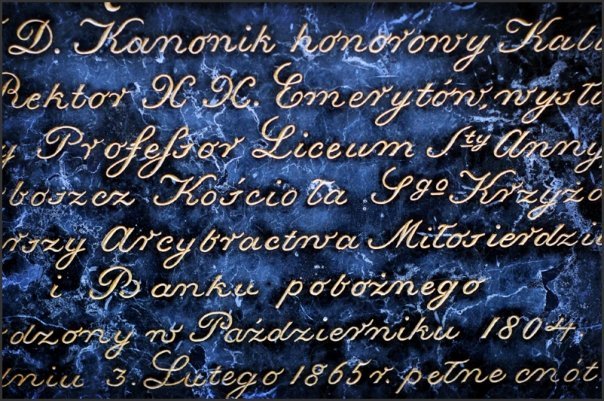 D. Kanonik honorowy Kat
Rektor X X. Emerytów, wysłu
y Professor Liceum Sty Anny
boszcz Kościoła Sgo Krzyża
rszy Arcybractwa Miłosierdzi
i Banku pobożnego
dzony w Październiku 1804
dniu 3. Lutego 1865 r. pełne cnót